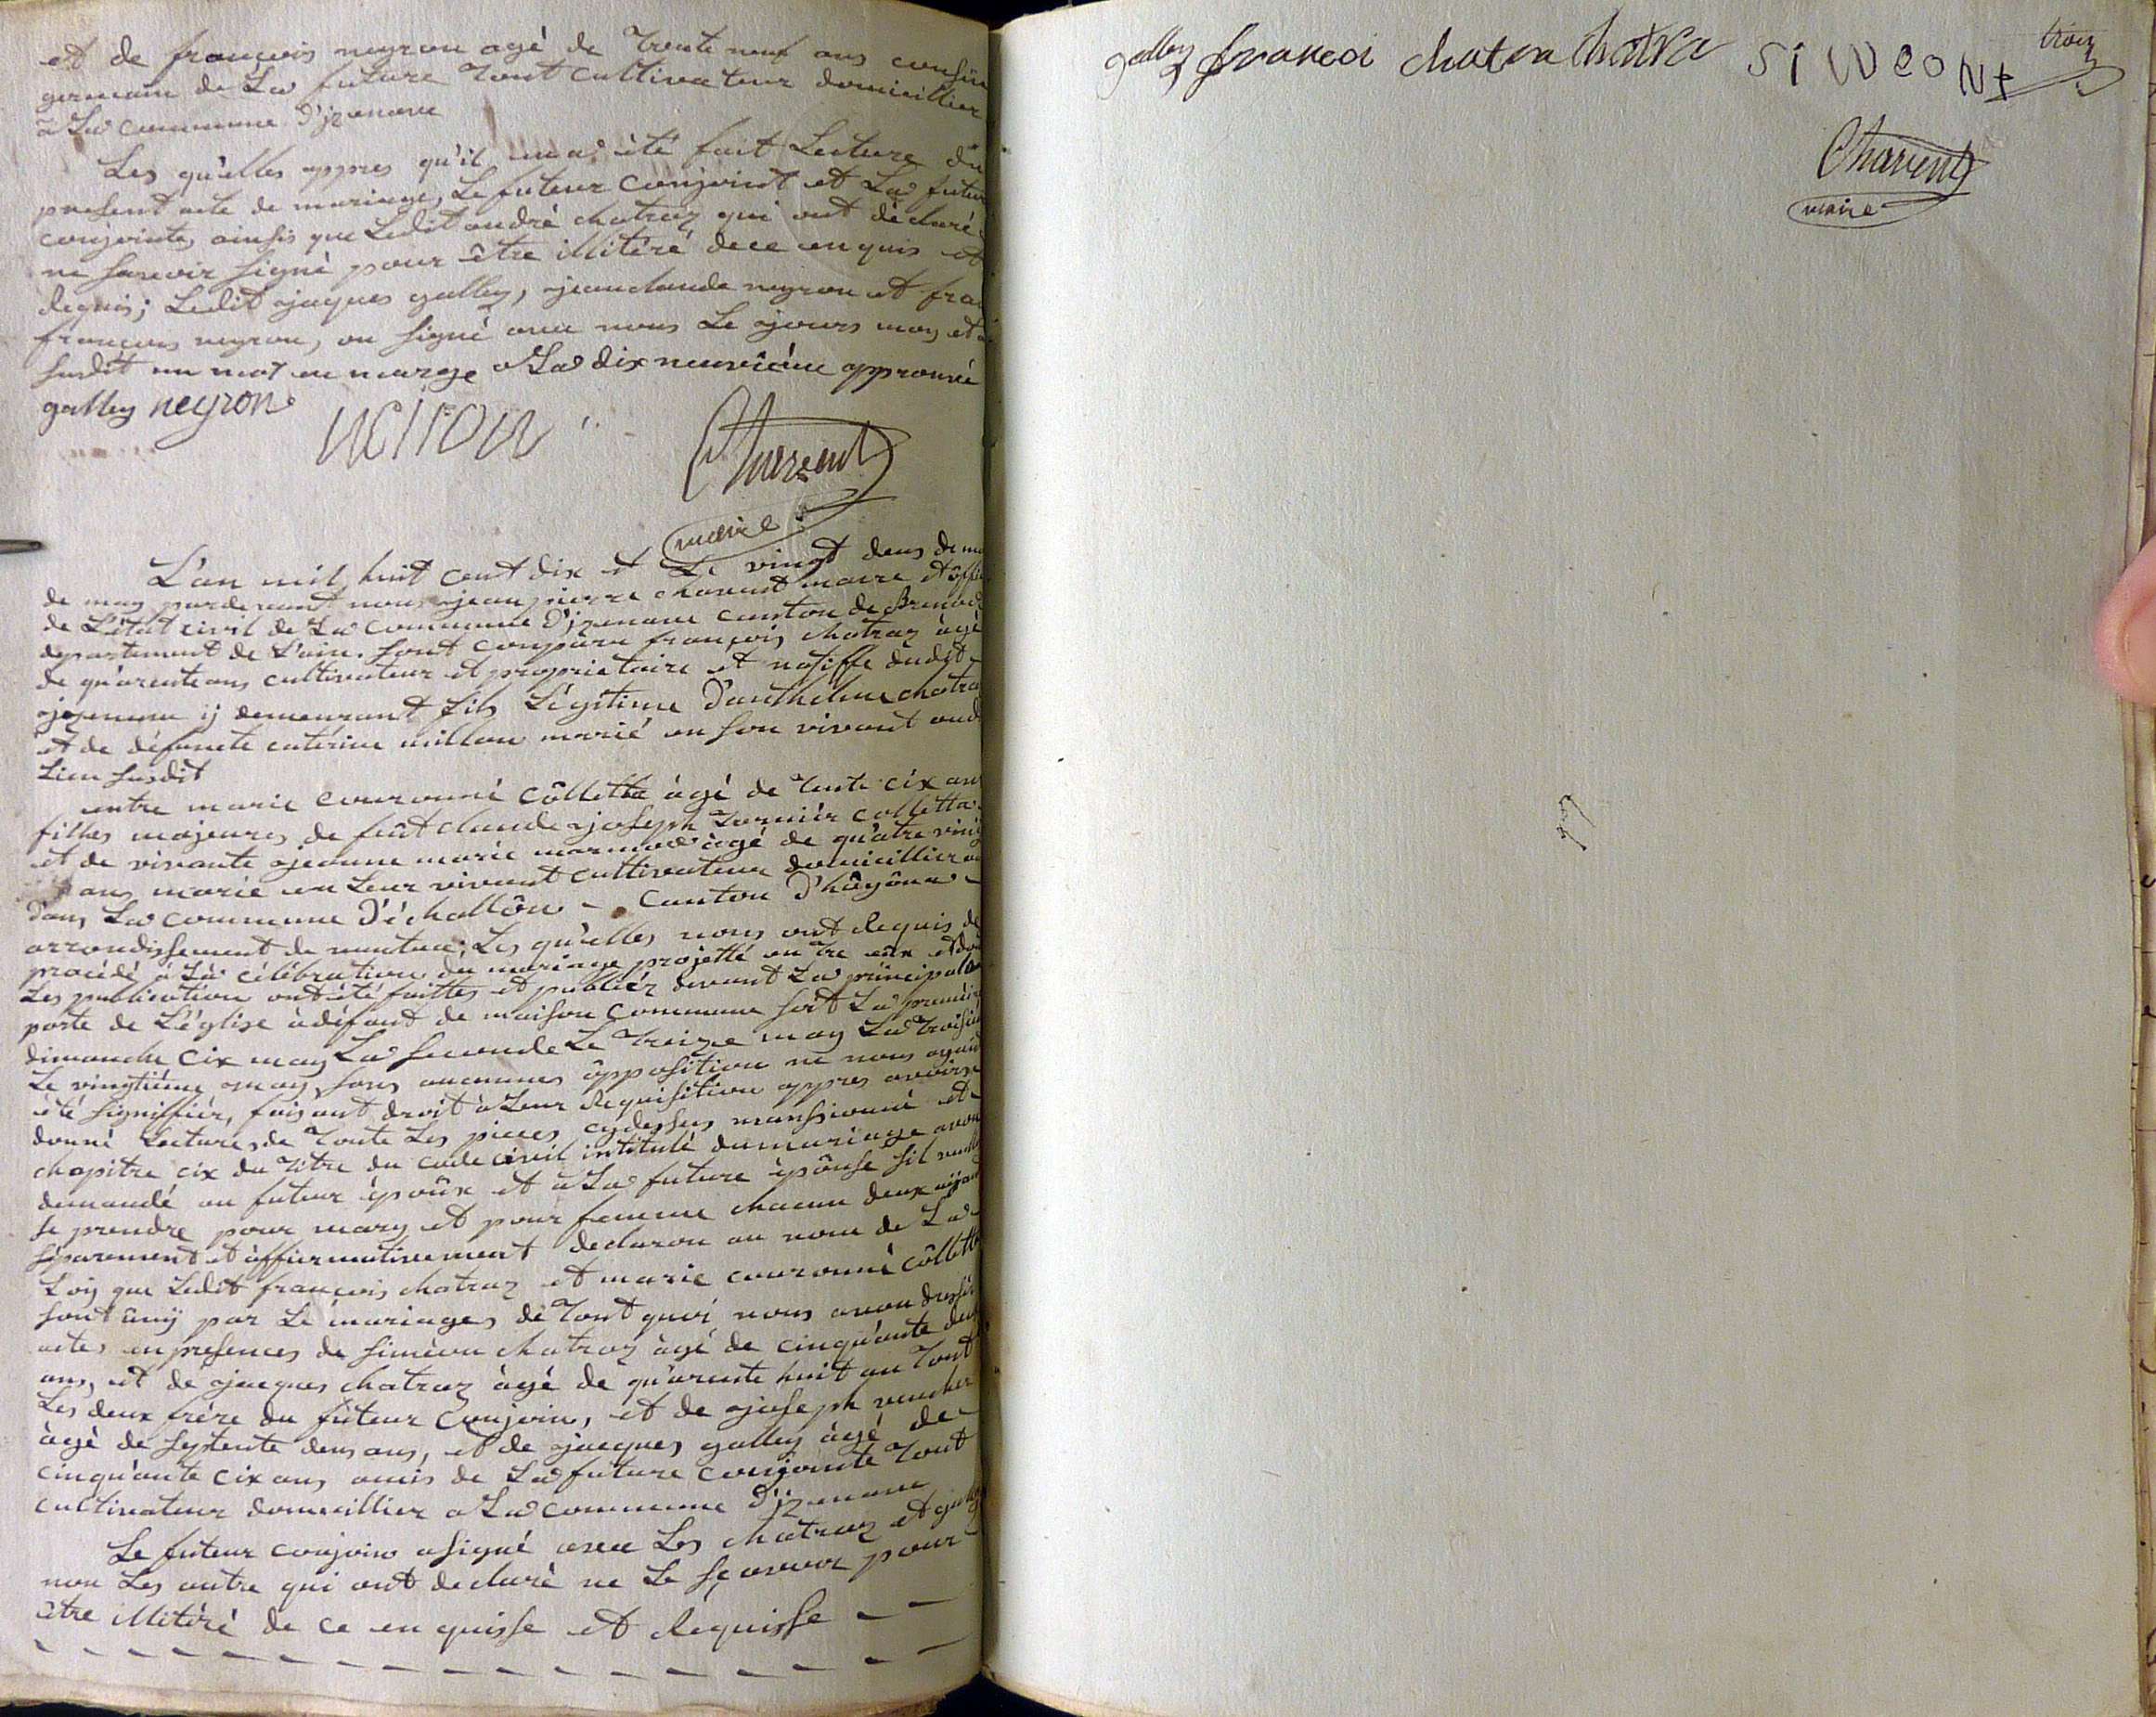 et de francois neyron agé de trente neuf ans consin
germain de La future tout cultivateur domicillier
a La commune d'jzenave
Les qu'elles appres qu'il à été fait Lecture du
present acte de mariage, Le futeur conjoint et La future
conjointe, ainsis que Ledit andré chatraz qui ont déclaré
ne scavoir signé pour être illitéré de ce en quis et
Requis; Ledit jaques galley, jeanclaude neyron et fran
francois neyron, on signé avec nous Le jours may et
susdit un mot en marge a La dix neuviême approuvé
galley neyron
neiron
Charvent
maire
L'an mil huit cent dix et Le vingt deus de
de may pardevant nous jean pierre charvent maire et offi
de L'état civil de La commune d'jzenave canton de Brenod
departement de L'ain. Sont comparu françois chatraz àgé
de qu'arente ans cultivateur et proprietaire et natiffe dudit
jzenave ij demeurant fils Légitime d'anthelme chatra
et de défuncte catérine millon marié en son vivant aud
Lieu susdit
entre marie couronné Côlletta àgé de trente cix ans
filles majeures de feût claude joseph tornièr colletta
et de vivante jeanne marie marmod àgé de qu'atre ving
ans marié en Leur vivant cultivateur domicillier
dans La commune d'échallôn - canton d'huyôna -
arrondissement de nantua; Les qu'elles nous ont Requis de
procédé à La célébration du mariage projetté entre eûx et don
Les publication ont été faittes et publiér devant La principalle
porte de L'église àdéfaut de maison commune soit La premiére
dimanche cix may La seconde Le treize may La troisié
Le vingtiéme may, sans aucunnes ôpposition ne nous ayaid
été signiffiér, faisant droit à Leur Réquisition appres avoire
donné Lecture, de toute Les pieces cydessus manssionné et
chapitre cix du titre du code civil intitulé du mariage avon
demandé au futeur épôûx et à La future épôuse sil veulle
se prendre pour mary et pour femme chacun deux ayant
séparement et àffirmativement declaron au nom de La
Loy que Ledit françois chatraz et marie couronné côlletta
sont ûnij par Le mariages de tout quoi nous avon dressér
actes en presences de siméon chatraz àgé de cinqu'ante deux
ans, et de jacques chatraz àgé de qu'arente huit an tout
Les deux frére du fûteur conjoin, et de joseph
àgé de septente deus ans, et de jacques galley àgé de
cinqu'ante cix ans amis de La future conjointe tout
cultivateur domicillier a La commune d'jzenave
Le futeur conjoin a signé avec Les chatraz et galley
non Les autre qui ont declaré ne Le sçavoir pour
être illitéré de ce en quisse et Requisse — —
galley francoi chatra chatra siweont
Charvent
maire